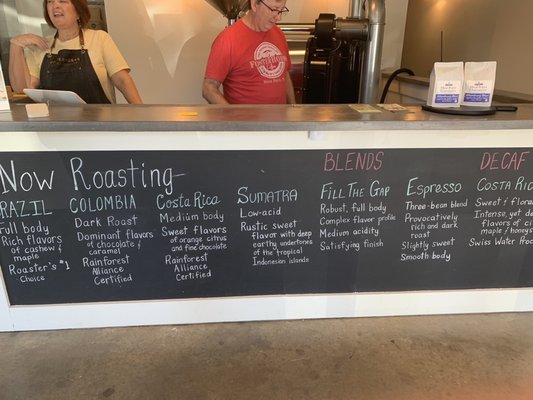 Now Roasting—
BRAZIL
Full body
Rich flavors
of cashew &
maple
Roaster's #1
Choice
COLOMBIA
Dark Roast
Dominant flavors
of chocolate &
caramel
Rainforest
Alliance
Certified
Costa Rica
Medium body
Sweet flavors
of orange citrus
and fine chocolate
Rainforest
Alliance
Certified
SUMATRA
Low-acid
Rustic sweet
flavor with deep
earthy undertones
of the tropical
Indonesian islands
BLENDS
FILL THE GAP
Robust, full body
Complex flavor profile
Medium acidity
Satisfying finish
ESPRESSO
Three-bean blend
Provocatively
rich and dark
roast
Slightly sweet
Smooth body
DECAF
COSTA RICA
Sweet & floral
Intense, yet
flavors of
maple & honey
Swiss Water